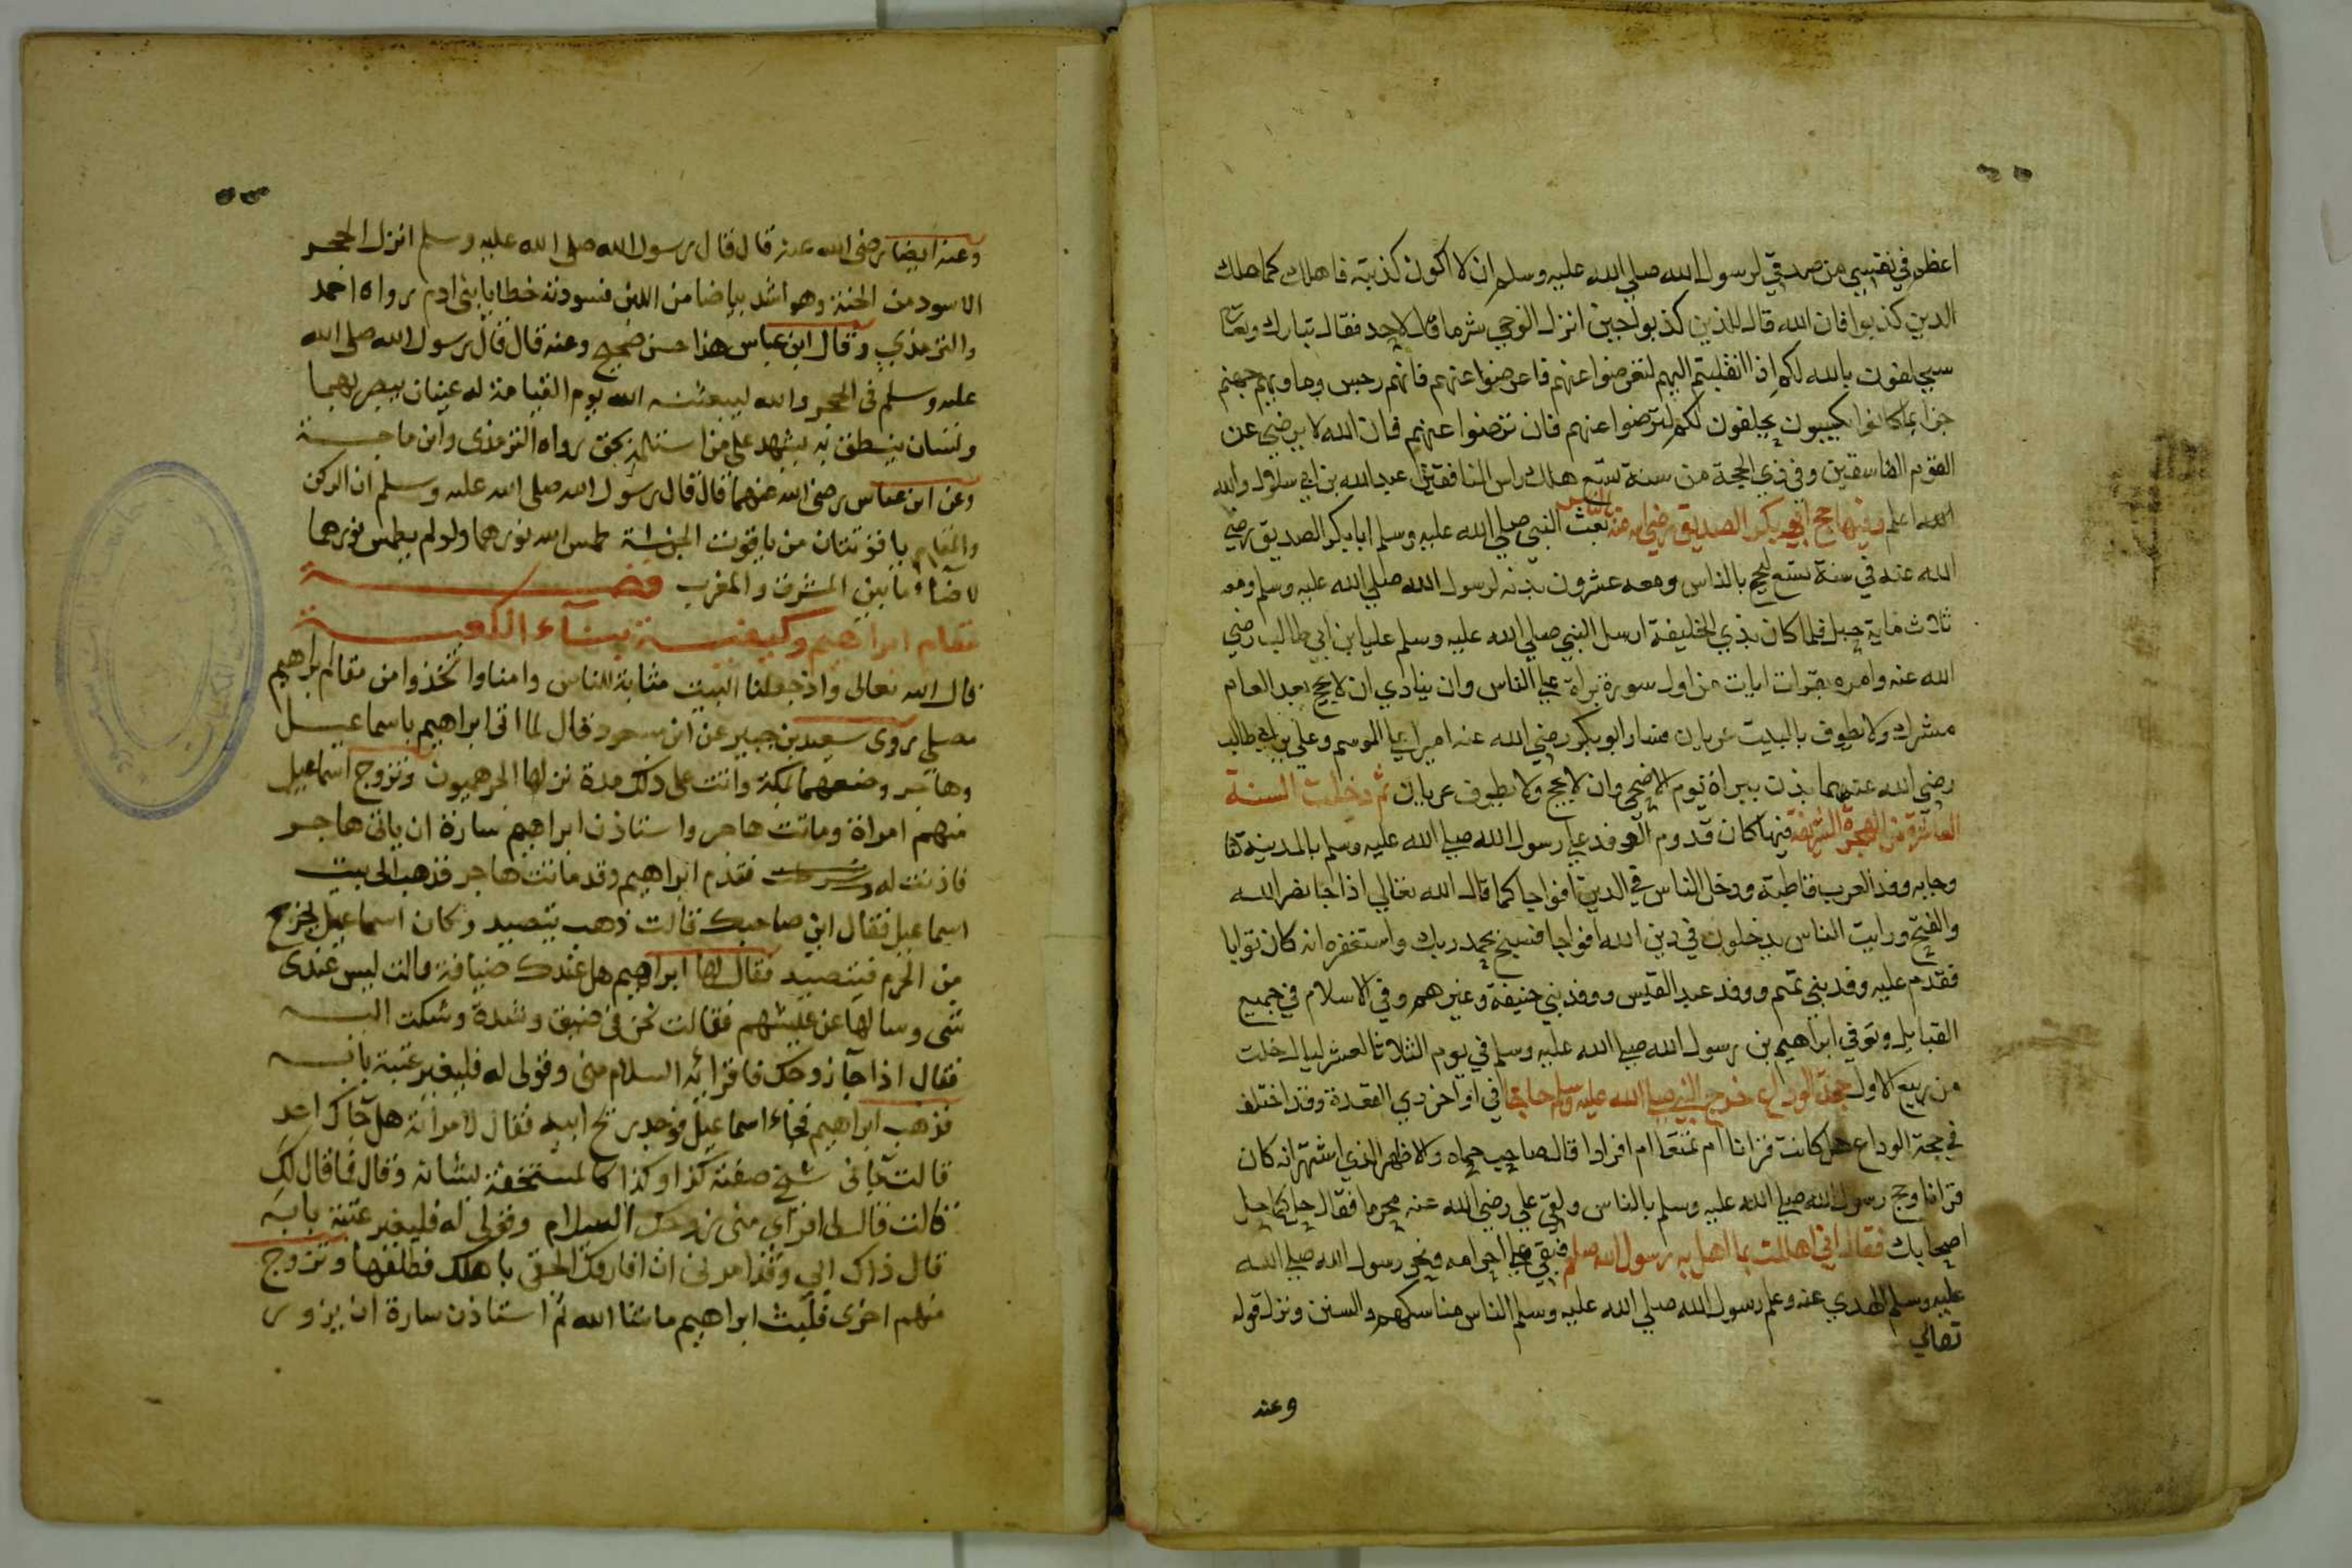 اعظم في نفسي من صدقي لرسول الله صلي الله عليه وسلم ان لا اكون كذبته فاهلك كما هلك
الدين كذبوا فان الله قال للذين كذبوا حين انزل الوحي شر ما قال لاحد فقال تبارك وتعالى
سيحلفون بالله لكم اذا انقلبتم اليهم لتعرضوا عنهم فاعرضوا عنهم فانهم رجس وماويهم جهنم
جزا بما كانوا يكسبون يحلفون لكم لترضوا عنهم فان ترضوا عنهم فان الله لا يرضي عن
القوم الفاسقين وفي ذي الحجة من سنة تسع هلك راس المنافقين عبد الله بن ابي سلول والله
الله اعلم وفيها حج ابي بكر الصديق رضي الله عنه بالناس بعث النبي صلي الله عليه وسلم ابا بكر الصديق رضي
الله عنه في سنة تسع ليحج بالناس ومعه عشرون بدنه لرسول الله صلي الله عليه وسلم ومعه
ثلاث ماية رجل فلما كان بذي الحليفة ارسل النبي صلي الله عليه وسلم عليا ابن ابي طالب رضي
الله عنه وامره بقرات ايات من اول سورة براة علي الناس وان ينادي ان لا يحج بعد العام
مشرك ولا يطوف بالبيت عريان فسار ابو بكر رضي الله عنه اميرا علي الموسم وعلي بن ابي طالب
رضي الله عنهما يذن ببراة يوم الاضحي وان لا يحج ولا يطوف عريان ثم دخلت السنة
العاشرة من الهجرة الشريفة فيها كان قدوم الوفد علي رسول الله صلي الله عليه وسلم بالمدينة
وجابه وفد العرب قاطبة ودخل الناس في الدين افواجا كما قال الله تعالي اذا جا نصر الله
والفتح ورايت الناس يدخلون في دين الله افواجا فسبح بحمد ربك واستغفره انه كان توابا
فقدم عليه وفد بني تميم ووفد عبد القيس ووفد بني حنيفة وغيرهم وفي الاسلام في جميع
القبايل وتوفي ابراهيم بن رسول الله صلي الله عليه وسلم في يوم الثلاثا لعشر ليال خلت
من ربيع الاول حجة الوداع خرج النبي صلي الله عليه وسلم حاجا في اواخر ذي القعدة وقد اختلف
في حجة الوداع هل كانت قرانا ام تمتعا ام افرادا قال صاحب حماه والاظهر الذي اشتهر انه كان
قرانا وحج رسول الله صلي الله عليه وسلم بالناس ولقي علي رضي الله عنه محرما فقال حل كما حل
اصحابك فقال اني اهللت بما اهل به رسول الله صلعم فبقي علي احرامه ونحر رسول الله صلي الله
عليه وسلم الهدي عنه وعلم رسول الله صلي الله عليه وسلم الناس مناسكهم والسنن ونزل قوله
تعالي
وعنه
وعنه ايضا رضى الله عنه قال قال رسول الله صلى الله عليه وسلم انزل الحجر
الاسود من الجنة وهو اشد بياضا من اللبن فسودته خطايا بنى ادم رواه احمد
والترمذي وقال ابن عباس هذا حسن صحيح وعنه قال قال رسول الله صلى الله
عليه وسلم فى الحجر والله ليبعثنه الله يوم القيامة له عينان يبصر بهما
ولسان ينطق به يشهد على من استلمه بحق رواه الترمذى وابن ماجة
وعن ابن عباس رضى الله عنهما قال قال رسول الله صلى الله عليه وسلم ان الركن
والمقام ياقوتتان من ياقوت الجنة طمس الله نورهما ولو لم يطمس نورهما
لاضاء ما بين المشرق والمغرب قصة
مقام ابراهيم وكيفية بناء الكعبة
قال الله تعالى واذ جعلنا البيت مثابة للناس وامنا واتخذوا من مقام ابراهيم
مصلى روى سعيد بن جبير عن ابن مسعود قال لما اتى ابراهيم باسماعيل
وهاجر وضعهما بمكة واتت على ذلك مدة نزلها الجرهميون وتزوج اسماعيل
منهم امراة وماتت هاجر واستاذن ابراهيم سارة ان ياتى هاجر
فاذنت له وشرطت فقدم ابراهيم وقد ماتت هاجر فذهب الى بيت
اسماعيل فقال اين صاحبك قالت ذهب يتصيد وكان اسماعيل يخرج
من الحرم فيتصيد فقال لها ابراهيم هل عندك ضيافة قالت ليس عندى
شى وسالها عن عيشهم فقالت نحن فى ضيق وشدة وشكت اليه
فقال اذا جآ زوجك فاقرائيه السلام منى وقولى له فليغير عتبة بابه
فذهب ابراهيم فجاء اسماعيل فوجد ريح ابيه فقال لامراته هل جآك احد
قالت جانى شيخ صفته كذا وكذا كالمستخفة بشانه وقال فما قال لك
قالت قال لى اقراى منى زوجك السلام وقولى له فليغير عتبة بابه
قال ذاك ابي وقد امرنى ان افارقك الحقى باهلك فطلقها وتزوج
منهم اخرى فلبث ابراهيم ما شا الله ثم استاذن سارة ان يزور